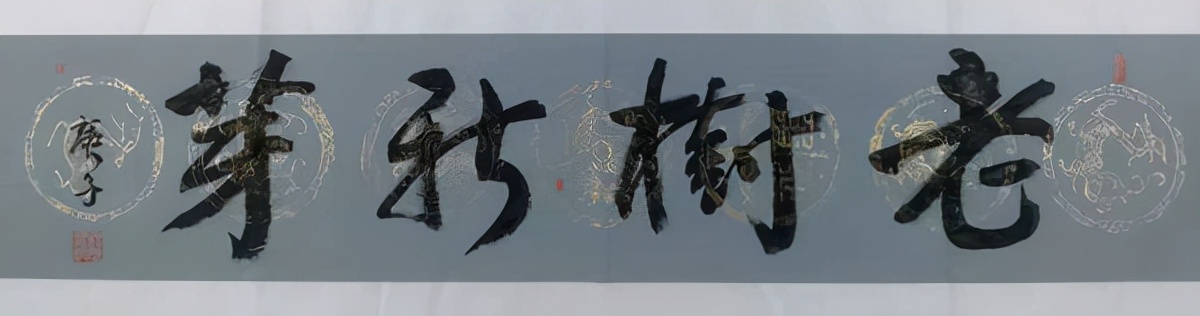 老树新芽
庚子